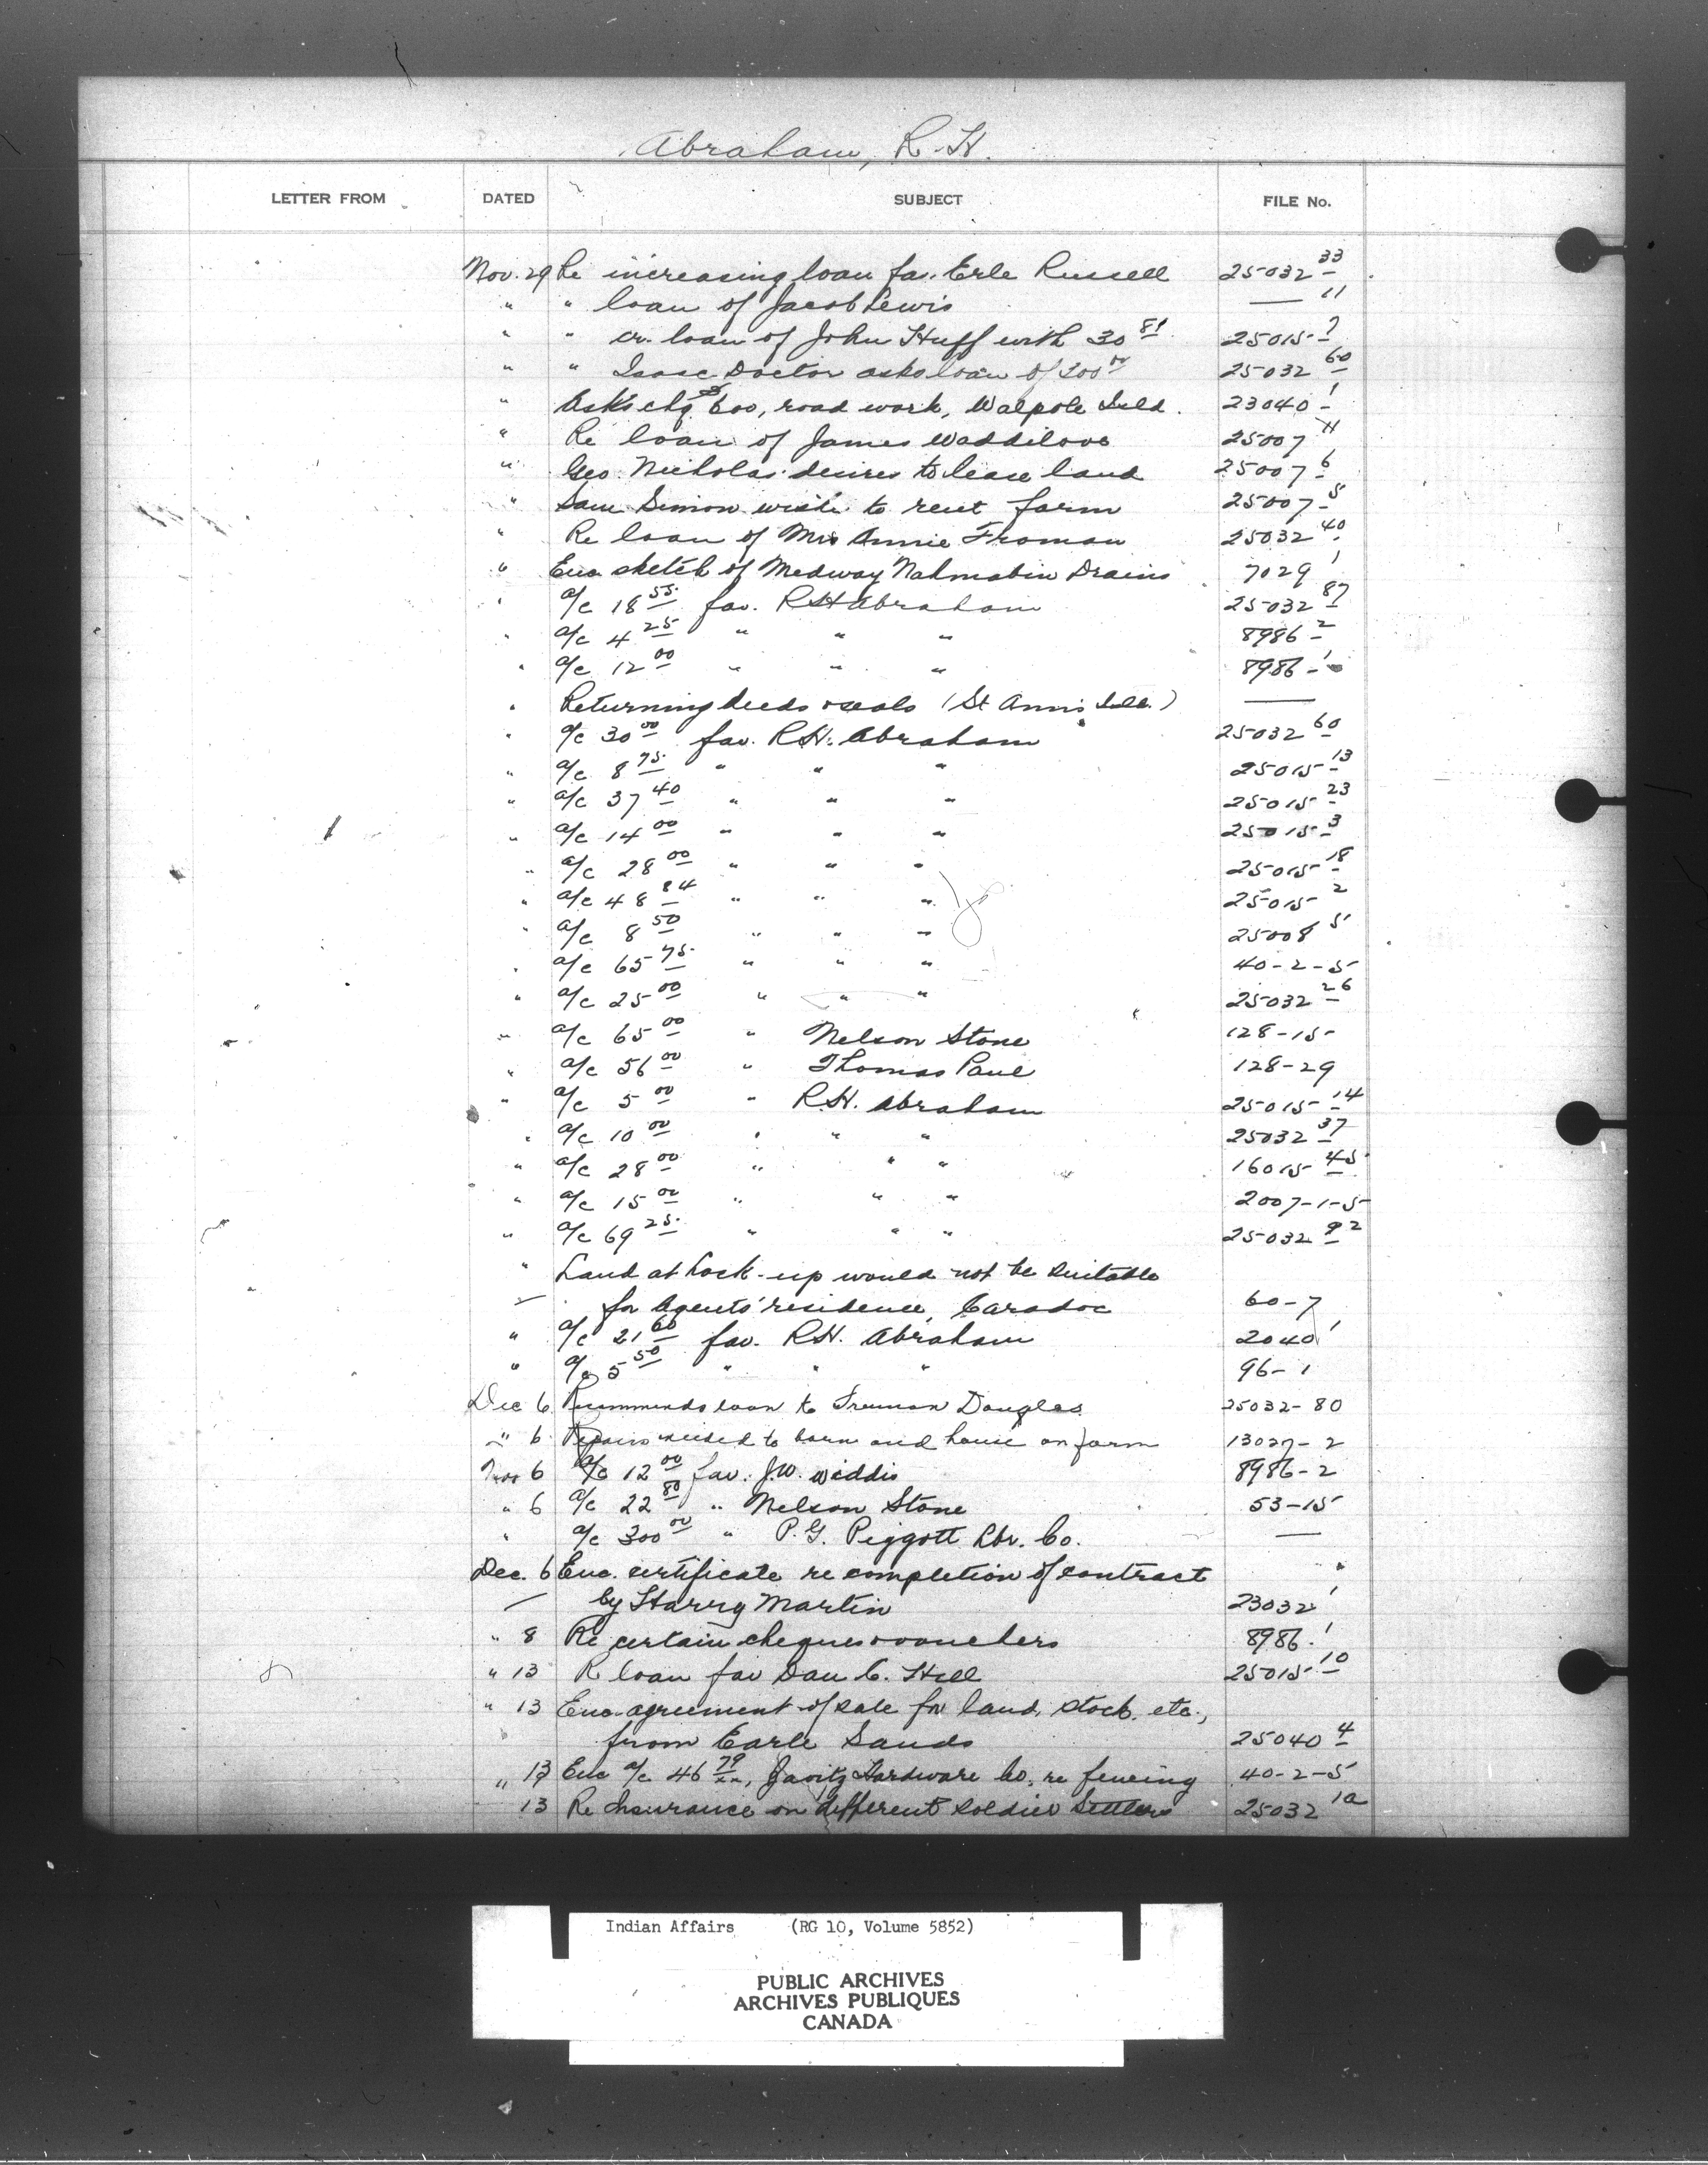 Abraham, R. H.
LETTER FROM DATED SUBJECT FILE No.
Nov. 29 Re increasing loan fav. Erle Russell 25032-33
" " loan of Jacob Lewis — 11
" " loan of John Huff with 30 81 25015-7
" " Isaac Doctor asks loan of 300 00 25032 60
" Asks chq 600, road work, Walpole Isld. 23040-1
" Re loan of James Waddilove 25007 11
" Geo. Nicholas desires to lease land 25007 6
" Sam Simon wishes to rent farm 25007-5
" Re loan of Mrs Annie Froman 25032 40
" Enc sketch of Medway Nahmabin Drains 7029 1
" a/c 18 55 fav. R H Abraham 25032 87
" a/c 4 25 " " " 8986-2
" a/c 12 00 " " " 8986-1
" Returning deeds & seals (St Ann's Isld.) —
" a/c 30 00 fav. R.H. Abraham 25032 60
" a/c 8 75 " " " 25015-13
" a/c 37 40 " " " 25015-23
" a/c 14 00 " " " 25015-3
" a/c 28 00 " " " 25015-18
" a/c 48 84 " " " 25015-2
" a/c 8 50 " " " 25008 5
" a/c 65 75 " " " 40-2-5
" a/c 25 00 " " " 25032 26
" a/c 65 00 " Nelson Stone 128-15
" a/c 56 00 " Thomas Paul 128-29
" a/c 5 00 " R.H. Abraham 25015-14
" a/c 10 00 " " " 25032 37
" a/c 28 00 " " " 16015 45
" a/c 15 00 " " " 2007-1-5
" a/c 69 25 " " " 25032 92
" Land at Lock-up would not be suitable
for Agents' residence, Caradoc 60-7
" a/c 21 60 fav. R.H. Abraham 2040 1
" a/c 5 50 " " " 96-1
Dec 6 Recommends loan to Truman Douglas 25032-80
" 6 Repairs needed to barn and house on farm 13027-2
Nov 6 a/c 12 00 fav. J.W. Widdis 8986-2
" 6 a/c 22 80 " Nelson Stone 53-15
" a/c 300 00 " P. G. Piggott Lbr. Co. —
Dec. 6 Enc. certificate re completion of contract
by Harry Martin 23032 1
" 8 Re certain cheques & vouchers 8986-1
" 13 Re loan fav Dan C. Hill 25015-10
" 13 Enc. agreement of sale for land, stock, etc.,
from Earle Sands 25040 4
" 13 Enc a/c 46 79, Hardware Co, re fencing 40-2-5
13 Re Insurance on different soldier Settlers 25032 1a
Indian Affairs (RG 10, Volume 5852)
PUBLIC ARCHIVES
ARCHIVES PUBLIQUES
CANADA